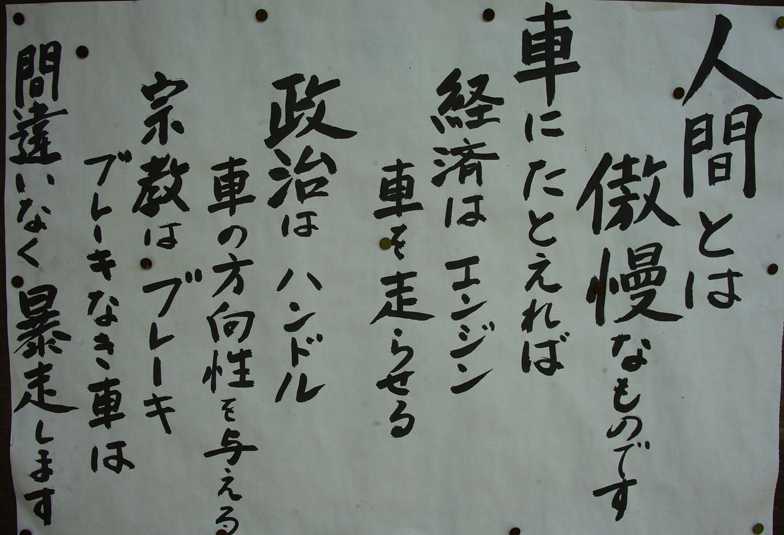 人間とは
傲慢なものです
車にたとえれば
経済は エンジン
車を走らせる
政治は ハンドル
車の方向性を与える
宗教は ブレーキ
ブレーキなき車は
間違いなく 暴走します